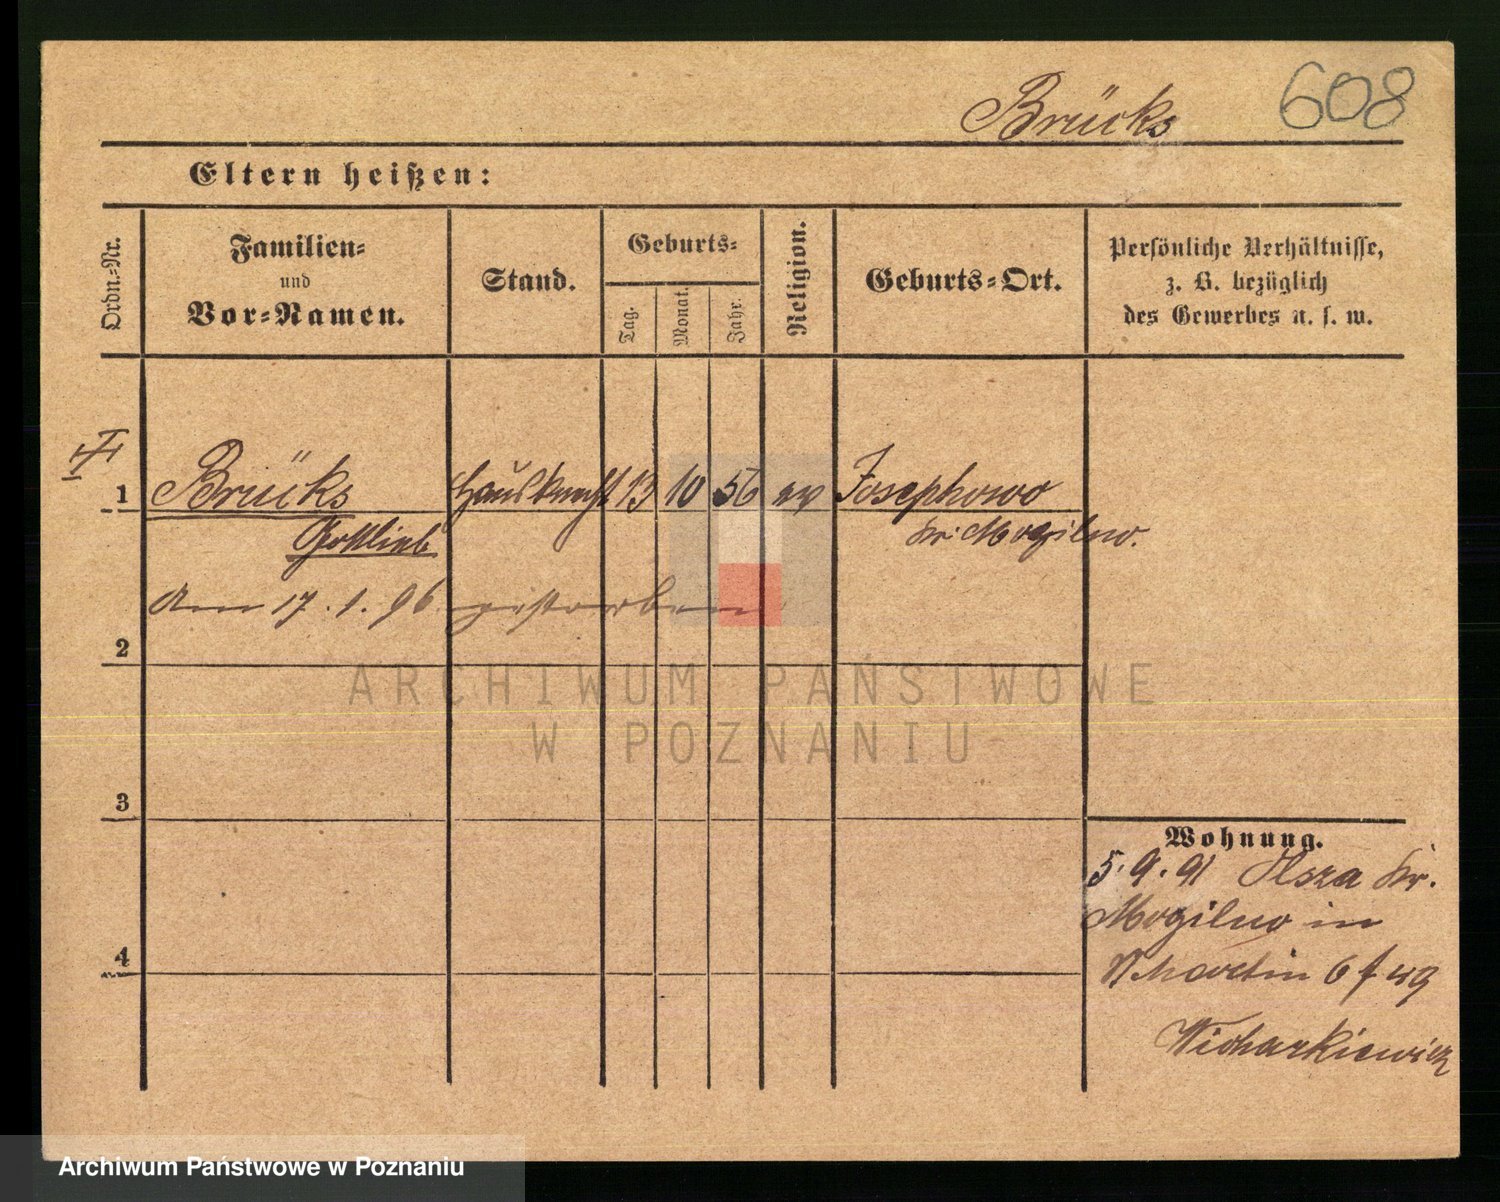 Brücks 608
Eltern heißen:
Ordn.-Nr.
Familien-
und
Vor-Namen.
Stand.
Geburts-
Tag.
Monat.
Jahr.
Religion.
Geburts-Ort.
Persönliche Verhältnisse,
z. B. bezüglich
des Gewerbes u. s. w.
1 Brücks Hausknecht 13 10 56 ev Josephowo
Gottlieb Kr. Mogilno.
Am 17.1.96 gestorben
2
ARCHIWUM PAŃSTWOWE
W POZNANIU
3
Wohnung.
5.9.91 Kr.
Mogilno in
Martin 6
4
Wicharkiewicz
Archiwum Państwowe w Poznaniu